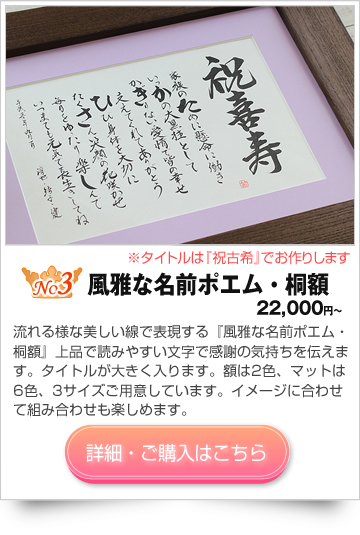 祝喜寿
家族のために懸命に働き
いつかの大黒柱として
かぎりない愛情で皆の幸せ
支えてくれてありがとう
ひび身体を大切に
たくさん笑顔の花咲かせ
毎日をゆったり楽しんで
いつまでも元気で長生きしてね
※タイトルは『祝古希』でお作りします
No3
風雅な名前ポエム・桐額
22,000円～
流れる様な美しい線で表現する『風雅な名前ポエム・
桐額』上品で読みやすい文字で感謝の気持ちを伝えま
す。タイトルが大きく入ります。額は2色、マットは
6色、3サイズご用意しています。イメージに合わせ
て組み合わせも楽しめます。
詳細・ご購入はこちら